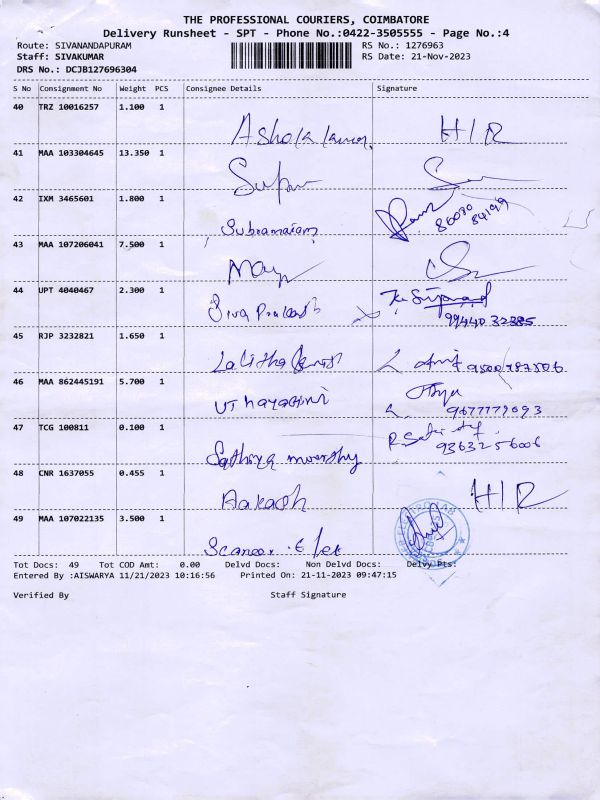 THE PROFESSIONAL COURIERS, COIMBATORE
Delivery Runsheet - SPT - Phone No.:0422-3505555 - Page No.:4
Route: SIVANANDAPURAM
RS No.: 1276963
Staff: SIVAKUMAR
RS Date: 21-Nov-2023
DRS No.: DCJB127696304
S No Consignment No Weight PCS Consignee Details Signature
40 TRZ 10016257 1.100 1
Ashok kumar H/R
41 MAA 103304645 13.350 1
42 IXM 3465601 1.800 1
Subramaniam
43 MAA 107206041 7.500 1
44 UPT 4040467 2.300 1
Siva Prakash
99440 32385
45 RJP 3232821 1.650 1
46 MAA 862445191 5.700 1
9677779693
47 TCG 100811 0.100 1
Sathiya moorthy 9363256006
48 CNR 1637055 0.455 1
Aakash H/R
49 MAA 107022135 3.500 1
Tot Docs: 49 Tot COD Amt: 0.00 Delvd Docs: Non Delvd Docs: Delvy Pts:
Entered By :AISWARYA 11/21/2023 10:16:56 Printed On: 21-11-2023 09:47:15
Verified By Staff Signature